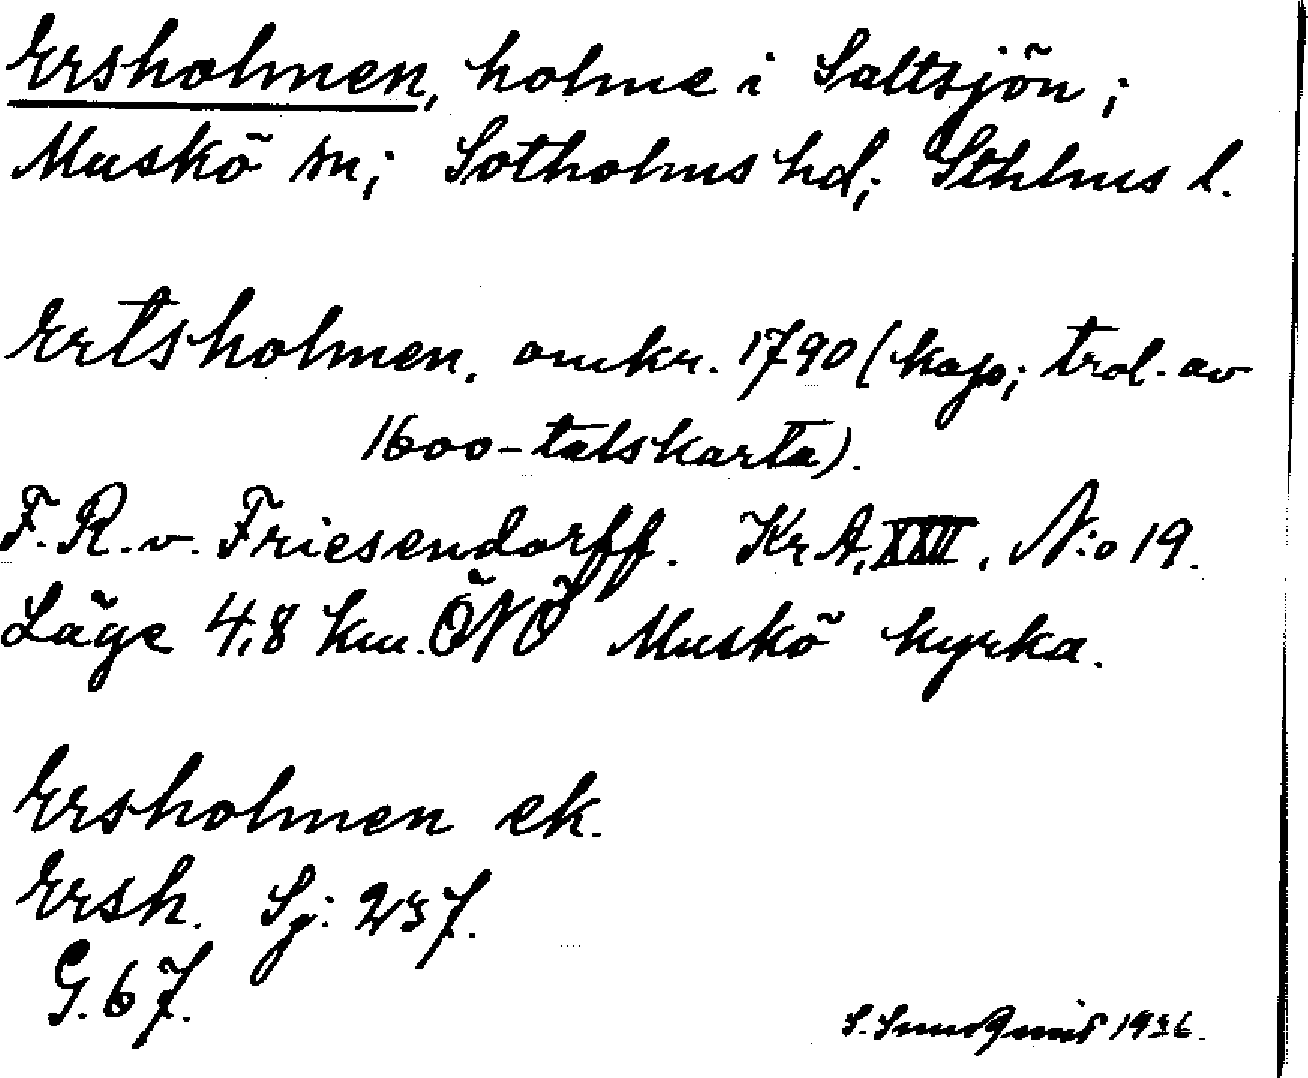 Ersholmen, holme i Saltsjön;
Muskö sn; Sotholms hd; Sthlms l.
Ertsholmen. omkr. 1790 (kop; trol. av
1600-talskarta).
F. R. v. Friesendorff. Kr A, XXII, N:o 19.
Läge 4,8 km. ÖNÖ Muskö kyrka.
Ersholmen ek.
Ersh. Sj: 237.
G. 67.
S. Sundquist 1936.